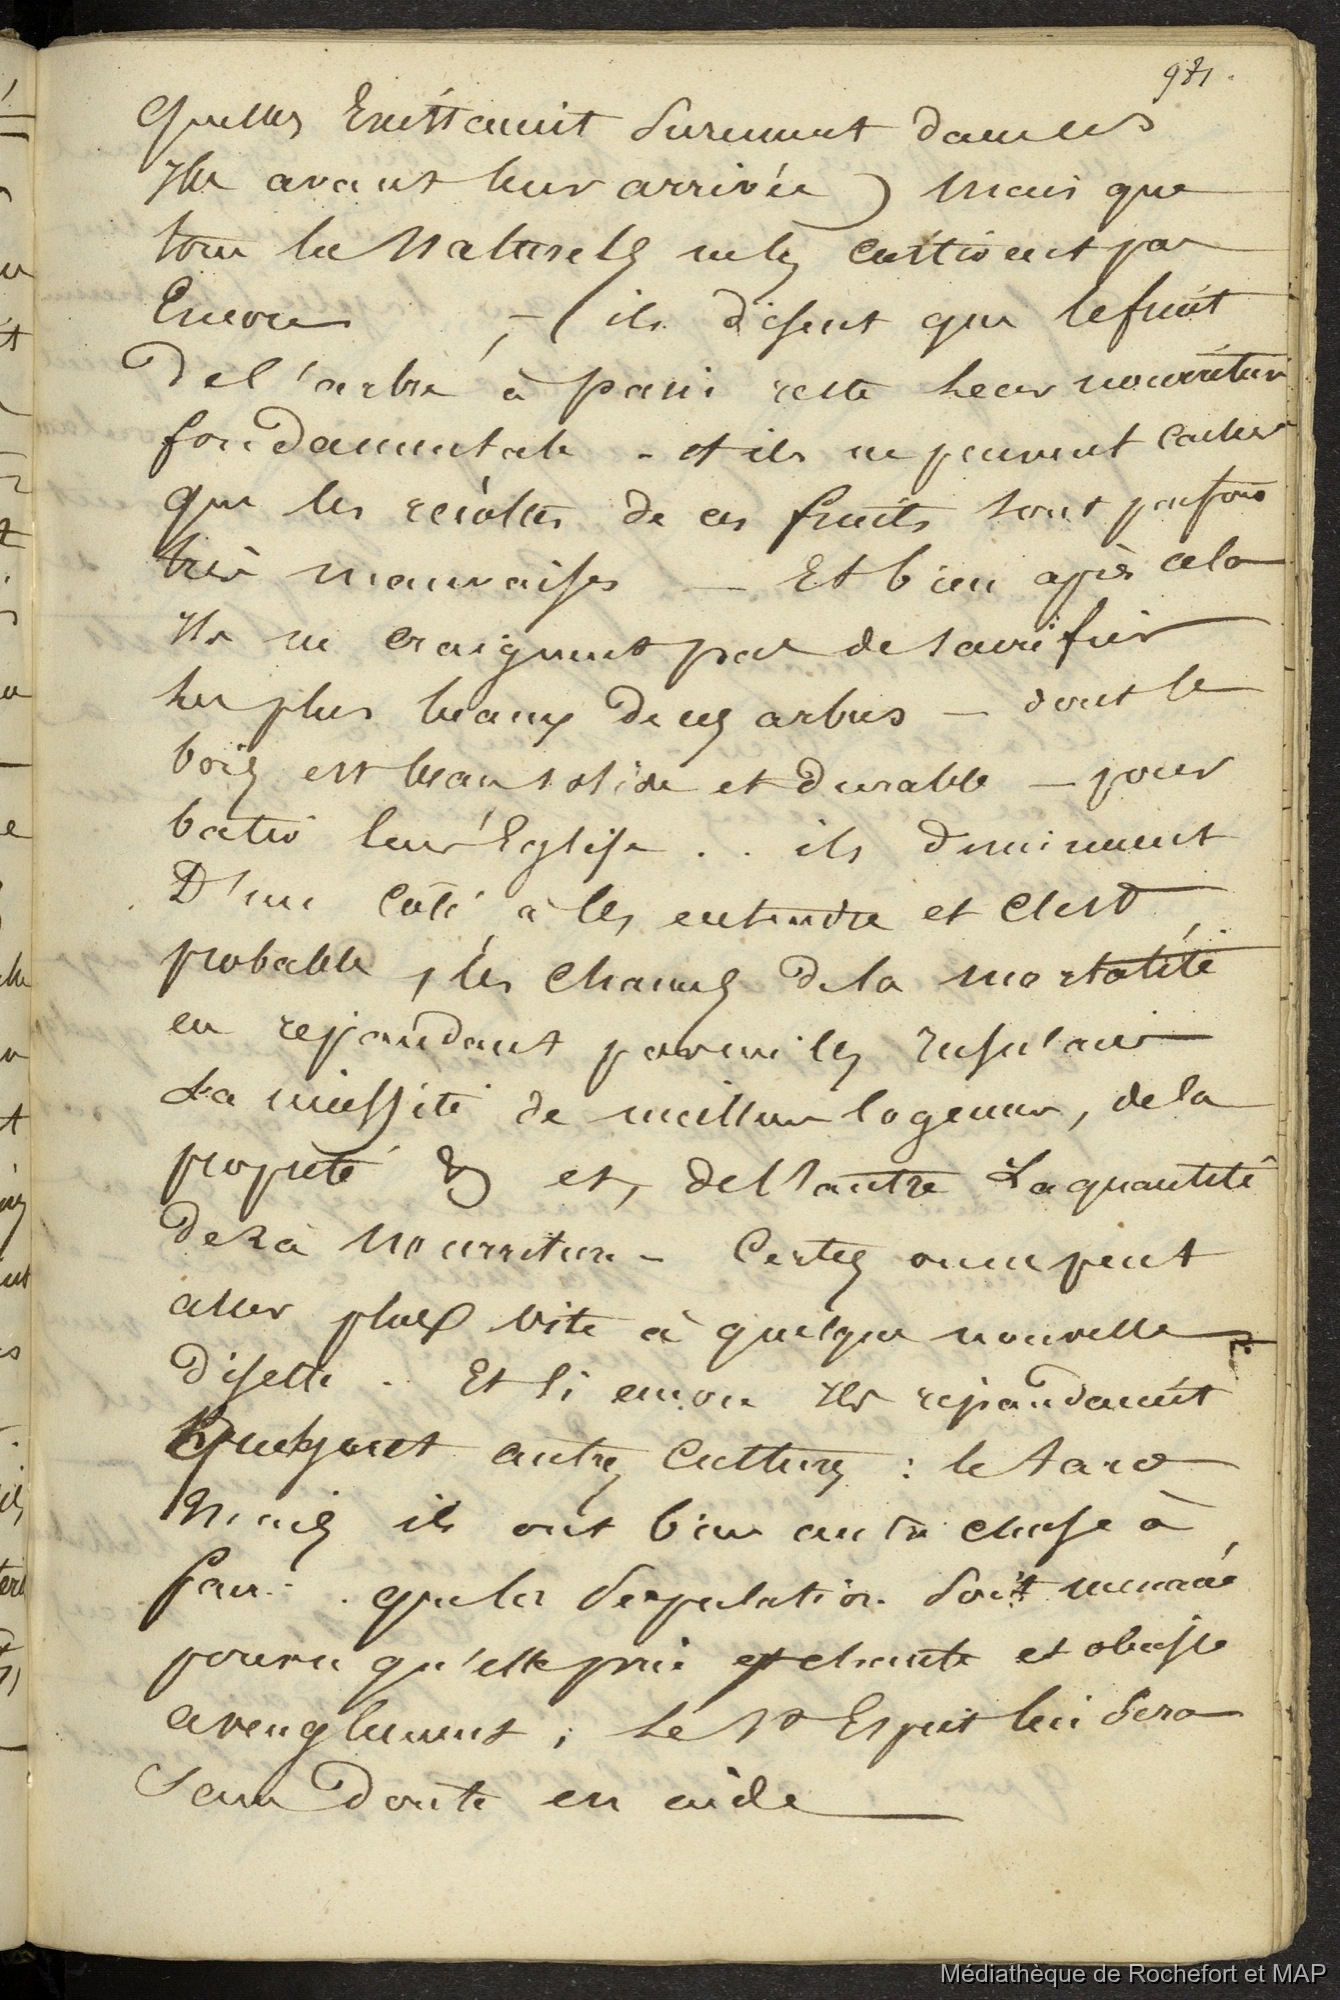 981.
quelles Existaient surement dans ces
Iles avant leur arrivée) mais que
tous les Naturels ne les cultivent pas
Encore , - (ils disent que le fruit
de l'arbre à pain reste leur nourriture
fondamentale - et ils ne peuvent cacher
que les récoltes de ces fruits sont parfois
très mauvaises — Et bien après cela
Ils ne craignent pas de sacrifier
les plus beaux de ces arbres — dont le
bois est beau solide et durable — pour
batir leur Eglise . . ils diminuent
D'un côté, à les entendre et c'est
probable, les chances de la mortalité
en repandant parmi les Insulaires
La nécessité de meilleur logement, de la
propreté & et, de l'autre La quantité
de la Nourriture - Certes on ne peut
aller plus vite à quelque nouvelle
disette . Et si encore Ils repandaient
quelques autres Cultures : le taro
Mais ils ont bien autre chose à
faire . que la population soit menacée
pourvu qu'elle prie et chante et obeisse
aveuglement ; Le St Esprit lui sera
Sans Doute en aide
Médiathèque de Rochefort et MAP